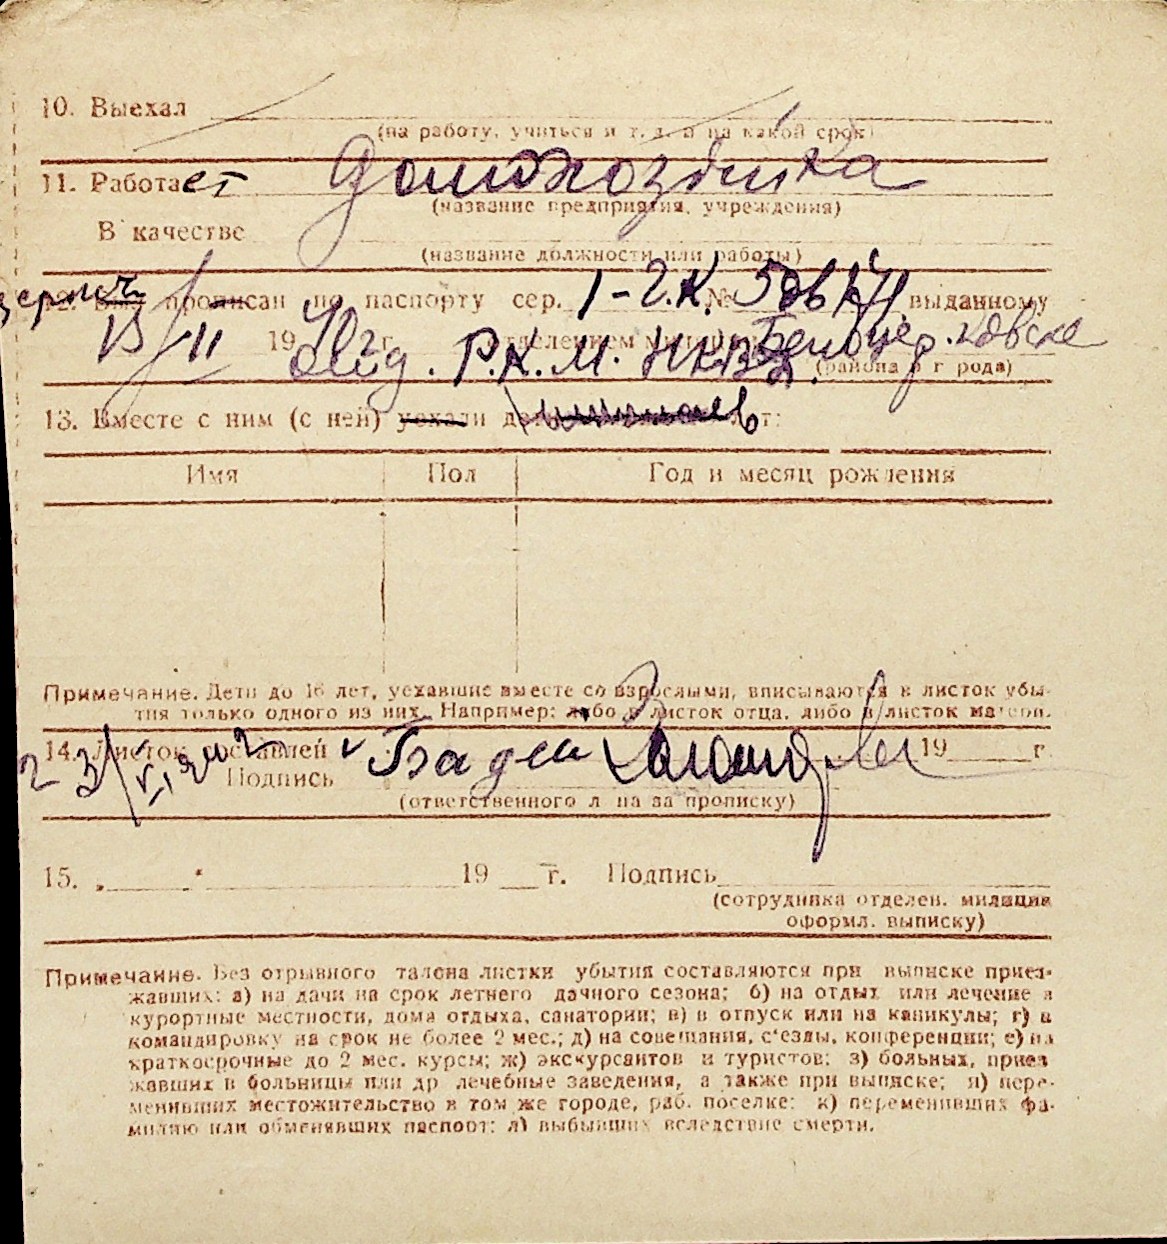 10. Выехал
(на работу, учиться и т. д. и на какой срок)
11. Работает домохозяйка
(название предприятия, учреждения)
В качестве
(название должности или работы)
12. Был прописан по паспорту сер. 1-г.К. № выданному
15/II 1940 г. отделением милиции
отд. Р.К.М. НКВД (района в г рода)
13. Вместе с ним (с ней) уехали дети лет:
Имя Пол Год и месяц рождения
Примечание. Дети до 16 лет, уехавшие вместе со взрослыми, вписываются в листок убы-
тия только одного из них. Например: либо в листок отца, либо в листок матери.
14. Листок составлен 19 г.
Подпись
(ответственного л ца за прописку)
15. „ " 19 г. Подпись
(сотрудника отделен. милиции
оформл. выписку)
Примечание. Без отрывного талона листки убытия составляются при выписке приез-
жавших: а) на дачи на срок летнего дачного сезона; б) на отдых или лечение в
курортные местности, дома отдыха, санатории; в) в отпуск или на каникулы; г) в
командировку на срок не более 2 мес.; д) на совещания, с'езды, конференции; е) на
краткосрочные до 2 мес. курсы; ж) экскурсантов и туристов; з) больных, приез
жавших в больницы или др лечебные заведения, а также при выписке; и) пере-
менивших местожительство в том же городе, раб. поселке; к) переменивших фа-
милию или обменявших паспорт; л) выбывших вследствие смерти.